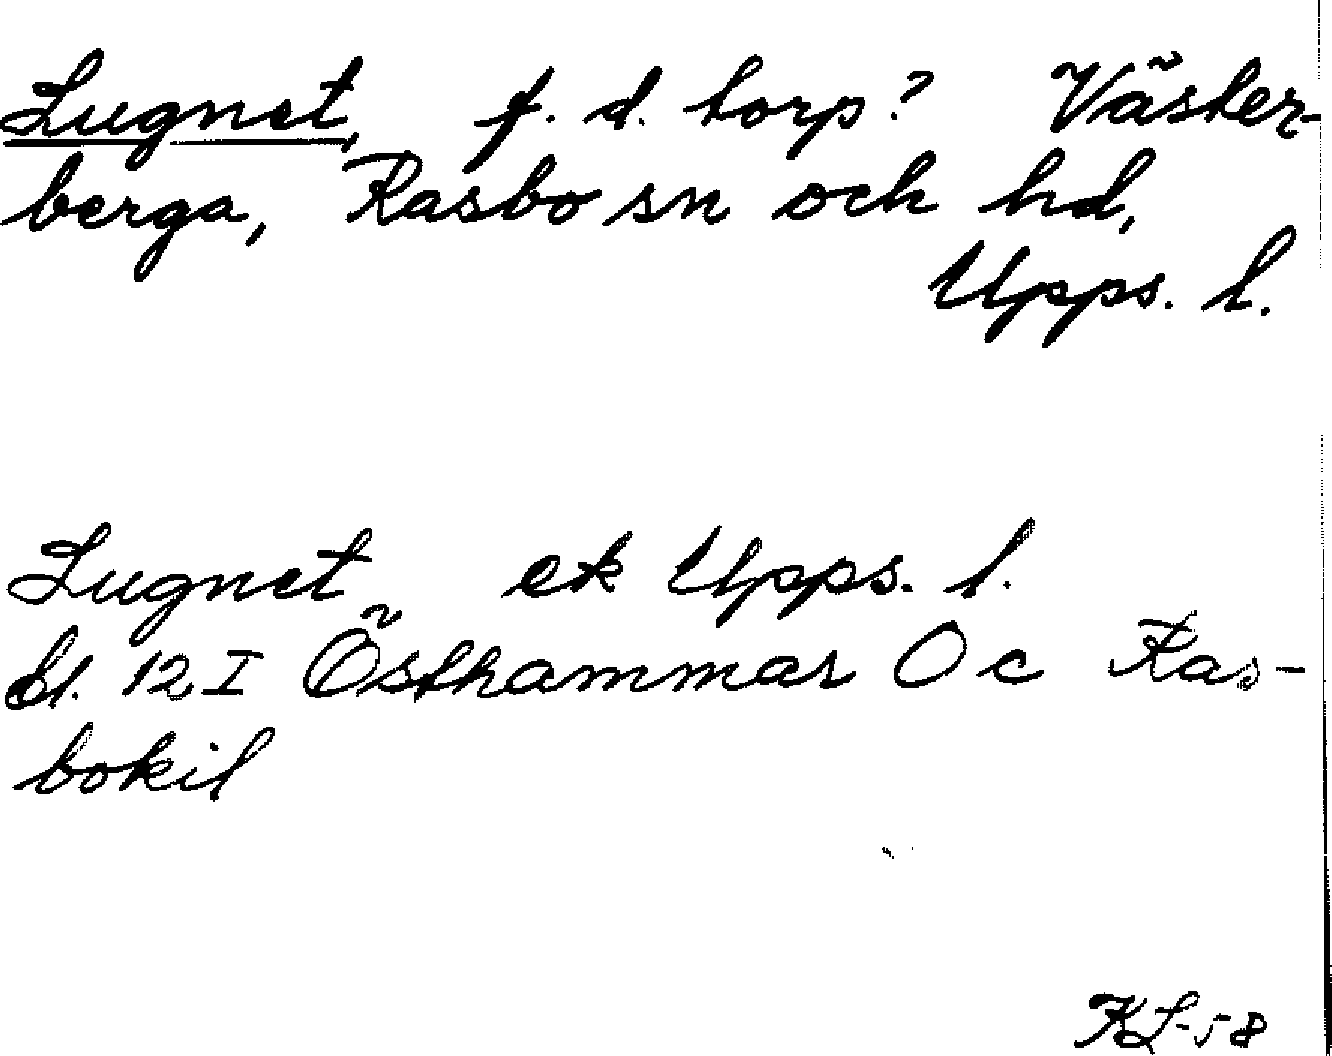 Lugnet, f. d. torp? Väster-
berga, Rasbo sn och hd,
Upps. l.
Lugnet ek Upps. l.
bl. 12 I Östhammar O c Ras-
bokil
KL-58